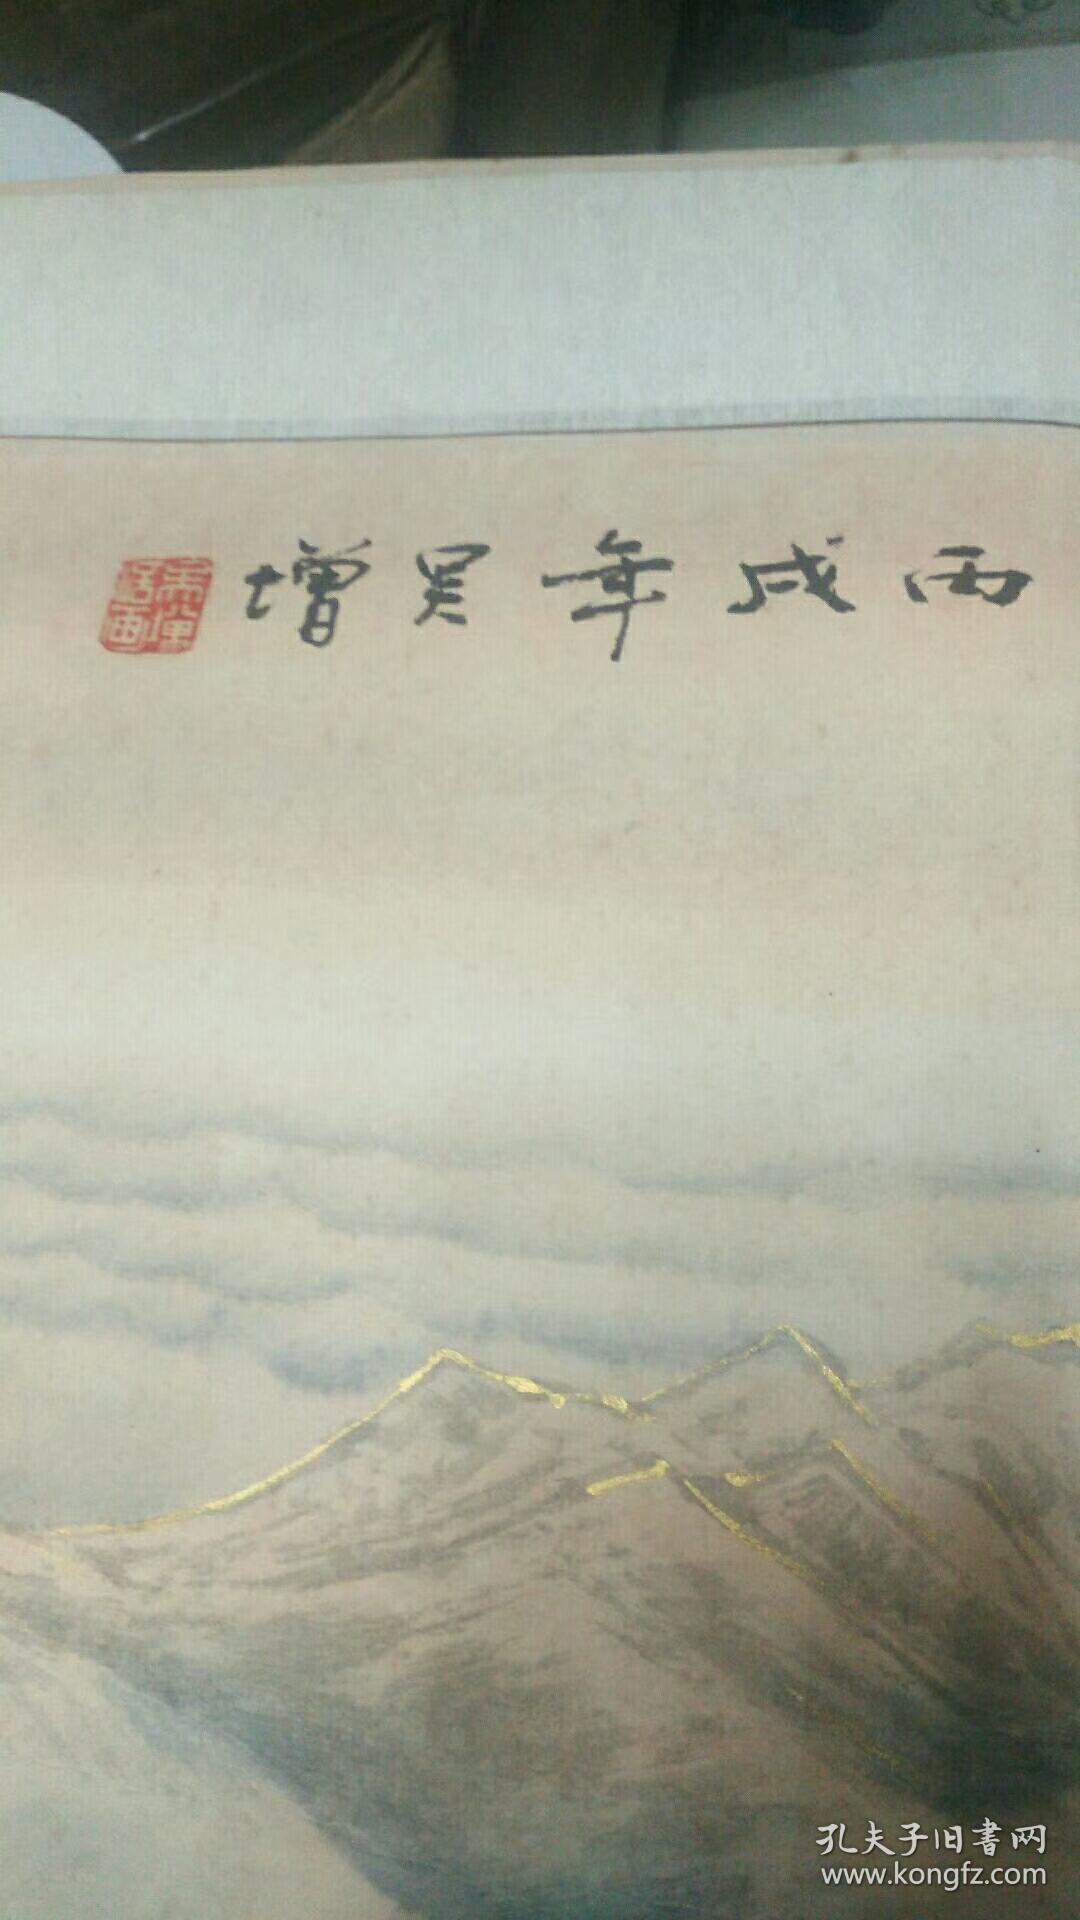 丙戌年吴增
孔夫子旧書网
www.kongfz.com